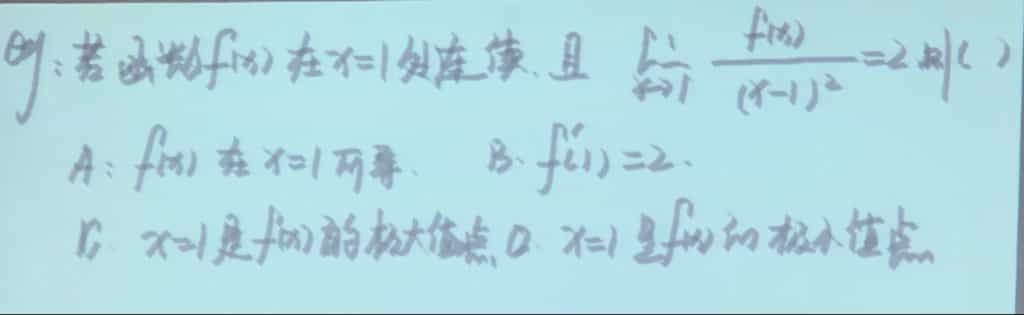 eg:若函数f(x)在x=1处连续.且 lim x→1 f(x)/(x-1)² =2 则( )
A:f(x)在x=1可导. B.f'(1)=2.
C. x=1是f(x)的极大值点 D. x=1是f(x)的极小值点